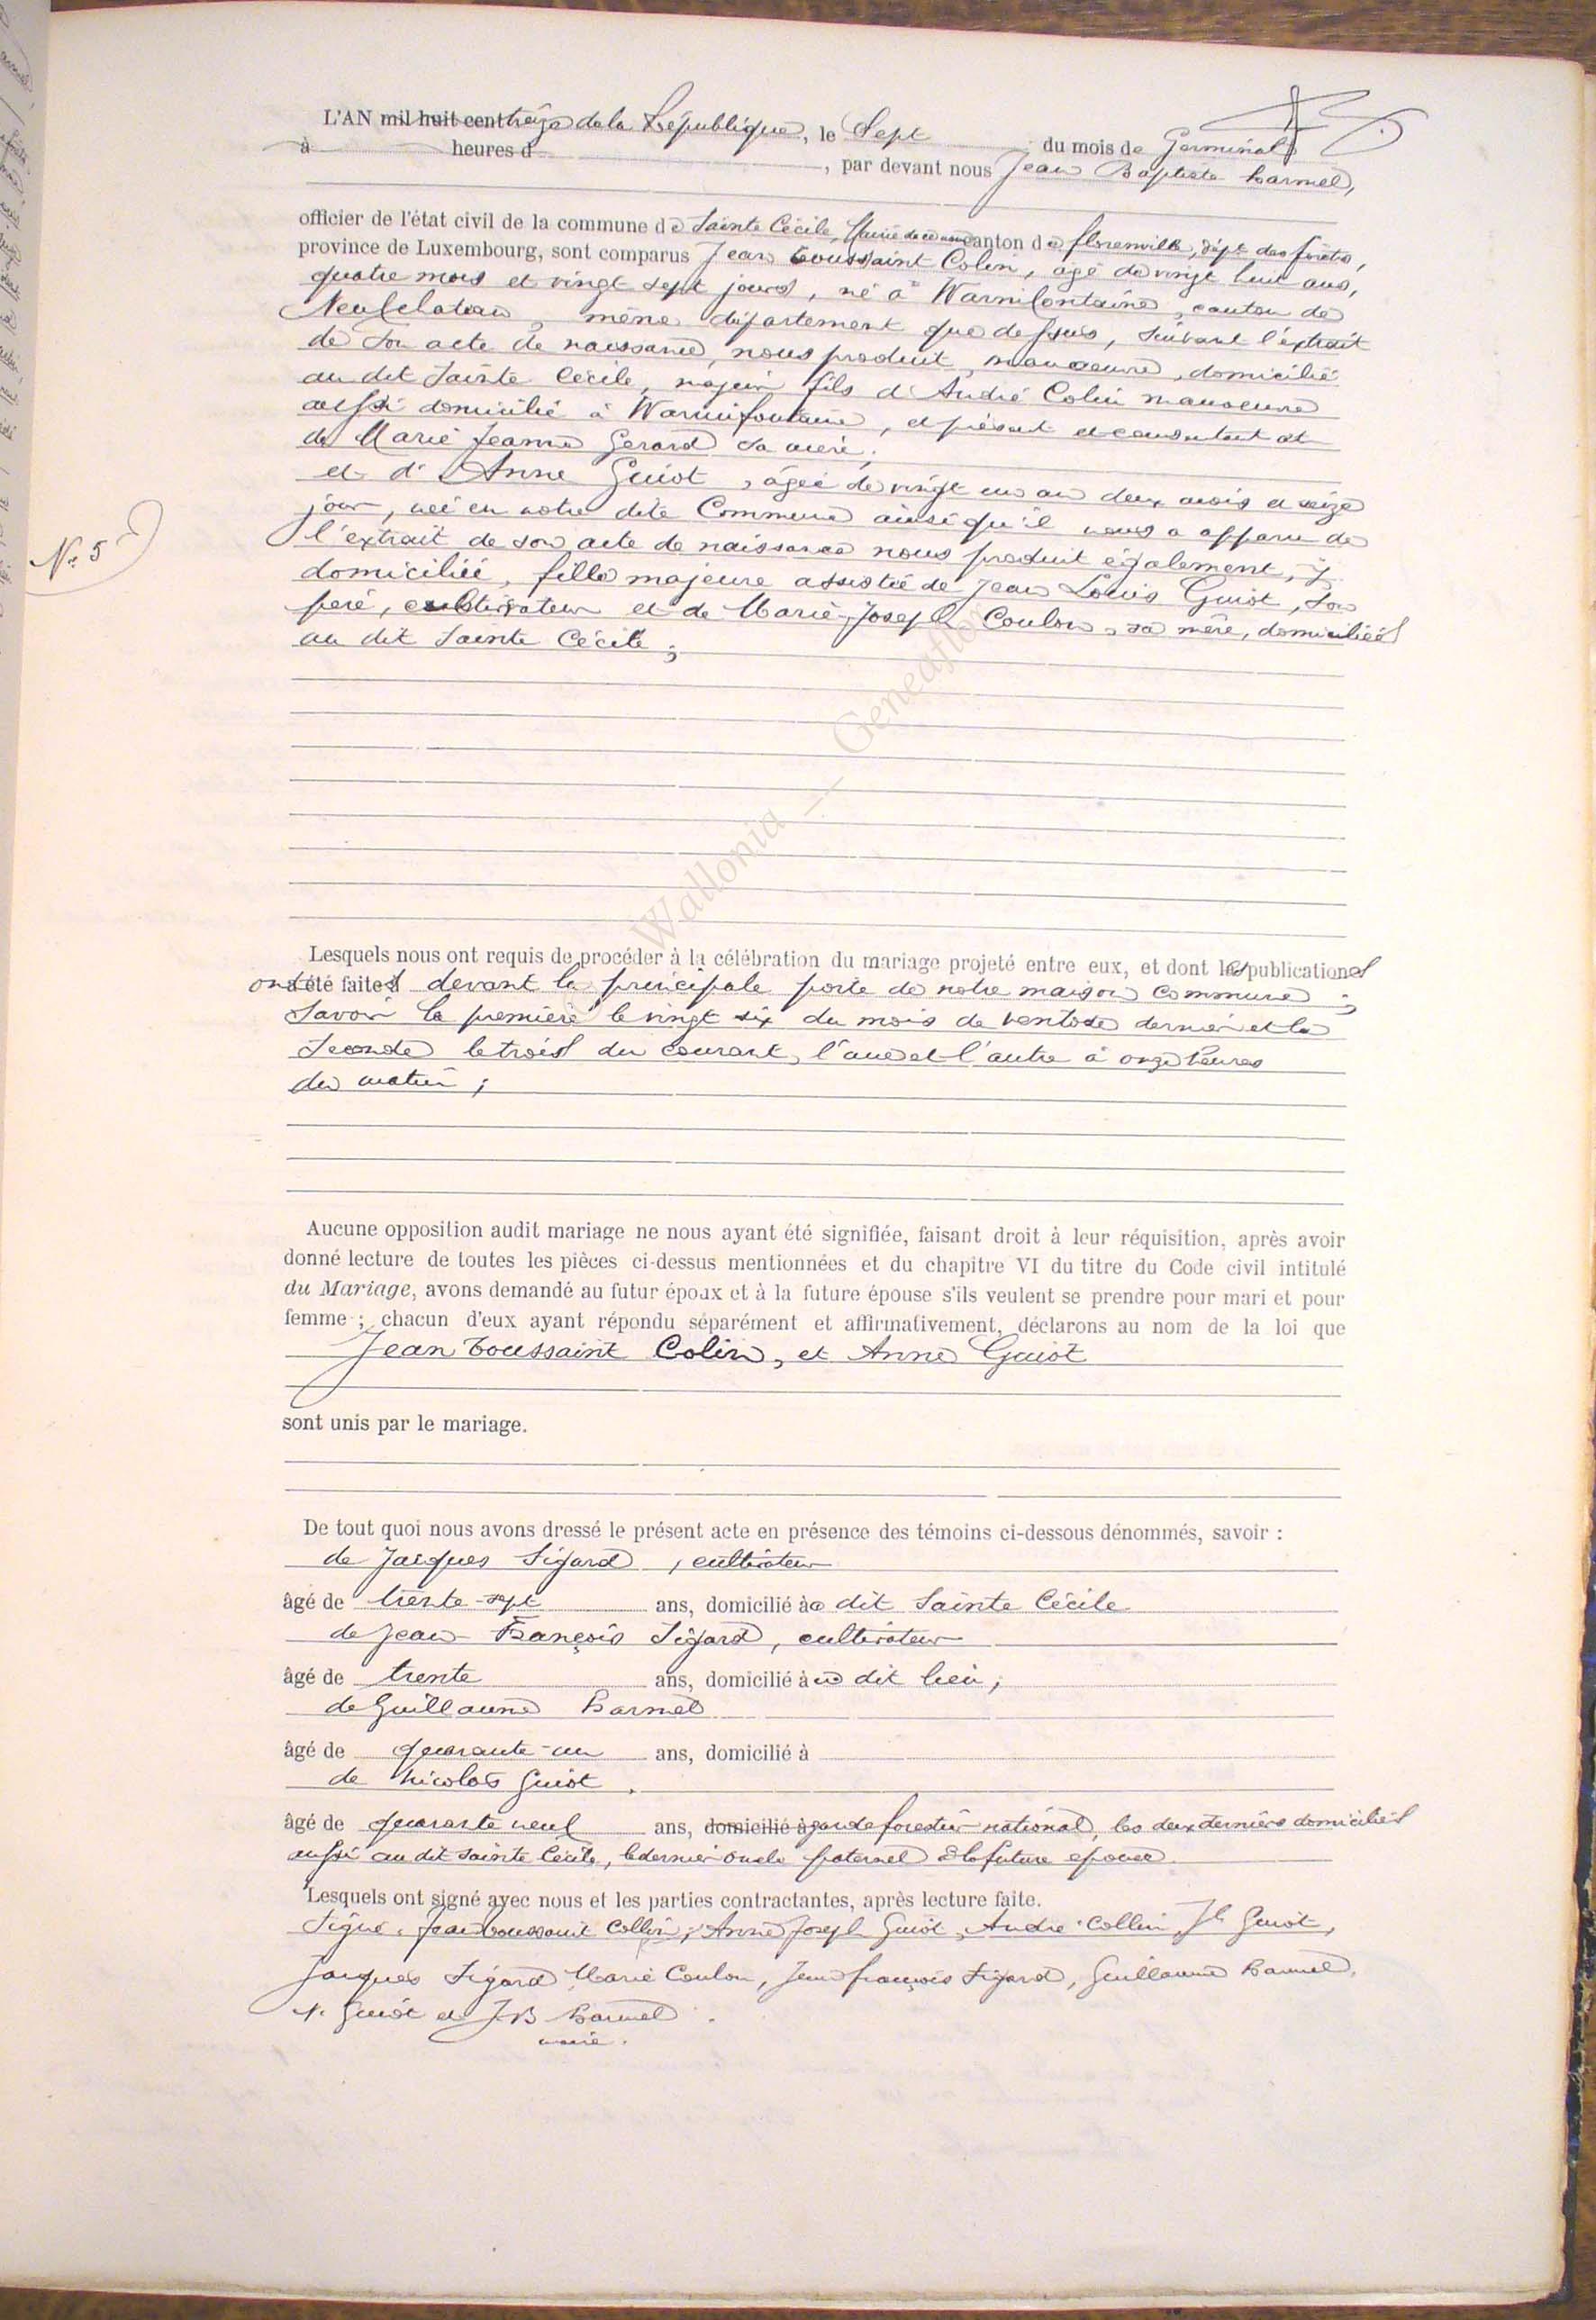 L'AN mil huit cent treize de la République, le Sept du mois de Germinal
à heures d , par devant nous Jean Baptiste Barmel,
officier de l'état civil de la commune de Sainte Cécile, Mairie de ce nom canton de florenville, dépt des forêts,
province de Luxembourg, sont comparus Jean Toussaint Colin, âgé de vingt huit ans,
quatre mois et vingt sept jours, né à Warmifontaine, canton de
Neufchateau, même département que dessus, suivant l'extrait
de son acte de naissance, nous produit, manoeuvre, domicilié
au dit Sainte Cécile, majeur fils d'André Colin manoeuvre
aussi domicilié à Warmifontaine, et présent et consentant et
de Marie Jeanne Gerard sa mère;
et d'Anne Guiot, âgée de vingt un an deux mois et seize
jour, née en notre dite Commune ainsi qu'il nous a apparu de
N° 5
l'extrait de son acte de naissance nous produit également, y
domiciliée, fille majeure assistée de Jean Louis Guiot, son
père, cultivateur et de Marie-Joseph Coulon, sa mère, domiciliés
au dit Sainte Cécile;
Wallonia — Geneaflor
Lesquels nous ont requis de procéder à la célébration du mariage projeté entre eux, et dont les publications
ont été faites devant la principale porte de notre maison commune;
Savoir la première le vingt six du mois de ventose dernier et la
Seconde le trois du courant, l'une et l'autre à onze heures
du matin;
Aucune opposition audit mariage ne nous ayant été signifiée, faisant droit à leur réquisition, après avoir
donné lecture de toutes les pièces ci-dessus mentionnées et du chapitre VI du titre du Code civil intitulé
du Mariage, avons demandé au futur époux et à la future épouse s'ils veulent se prendre pour mari et pour
femme ; chacun d'eux ayant répondu séparément et affirmativement, déclarons au nom de la loi que
Jean Toussaint Colin, et Anne Guiot
sont unis par le mariage.
De tout quoi nous avons dressé le présent acte en présence des témoins ci-dessous dénommés, savoir :
de Jacques Sigard, cultivateur
âgé de trente-sept ans, domicilié à dit Sainte Cécile
de Jean François Sigard, cultivateur
âgé de trente ans, domicilié à dit lieu;
de Guillaume Barmel
âgé de quarante-un ans, domicilié à
de Nicolas Guiot,
âgé de quarante neuf ans, domicilié à garde forestier national, les deux derniers domiciliés
aussi au dit Sainte Cécile, le dernier oncle paternel de la future epouse
Lesquels ont signé avec nous et les parties contractantes, après lecture faite.
Signé: Jean Toussaint Collin, Anne Joseph Guiot, Andre Collin, Jl Guiot,
Jacques Sigard, Marie Coulon, Jean françois Sigard, Guillaume Barmel,
N. Guiot et J-B Barmel
maire.